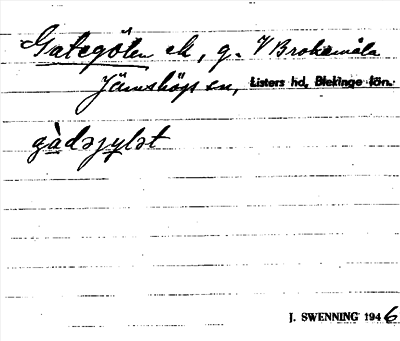 Gategöten ek, g. V Brokamåla
Jämshögs sn, Listers hd, Blekinge län.
gàdəjylət
J. SWENNING 1946